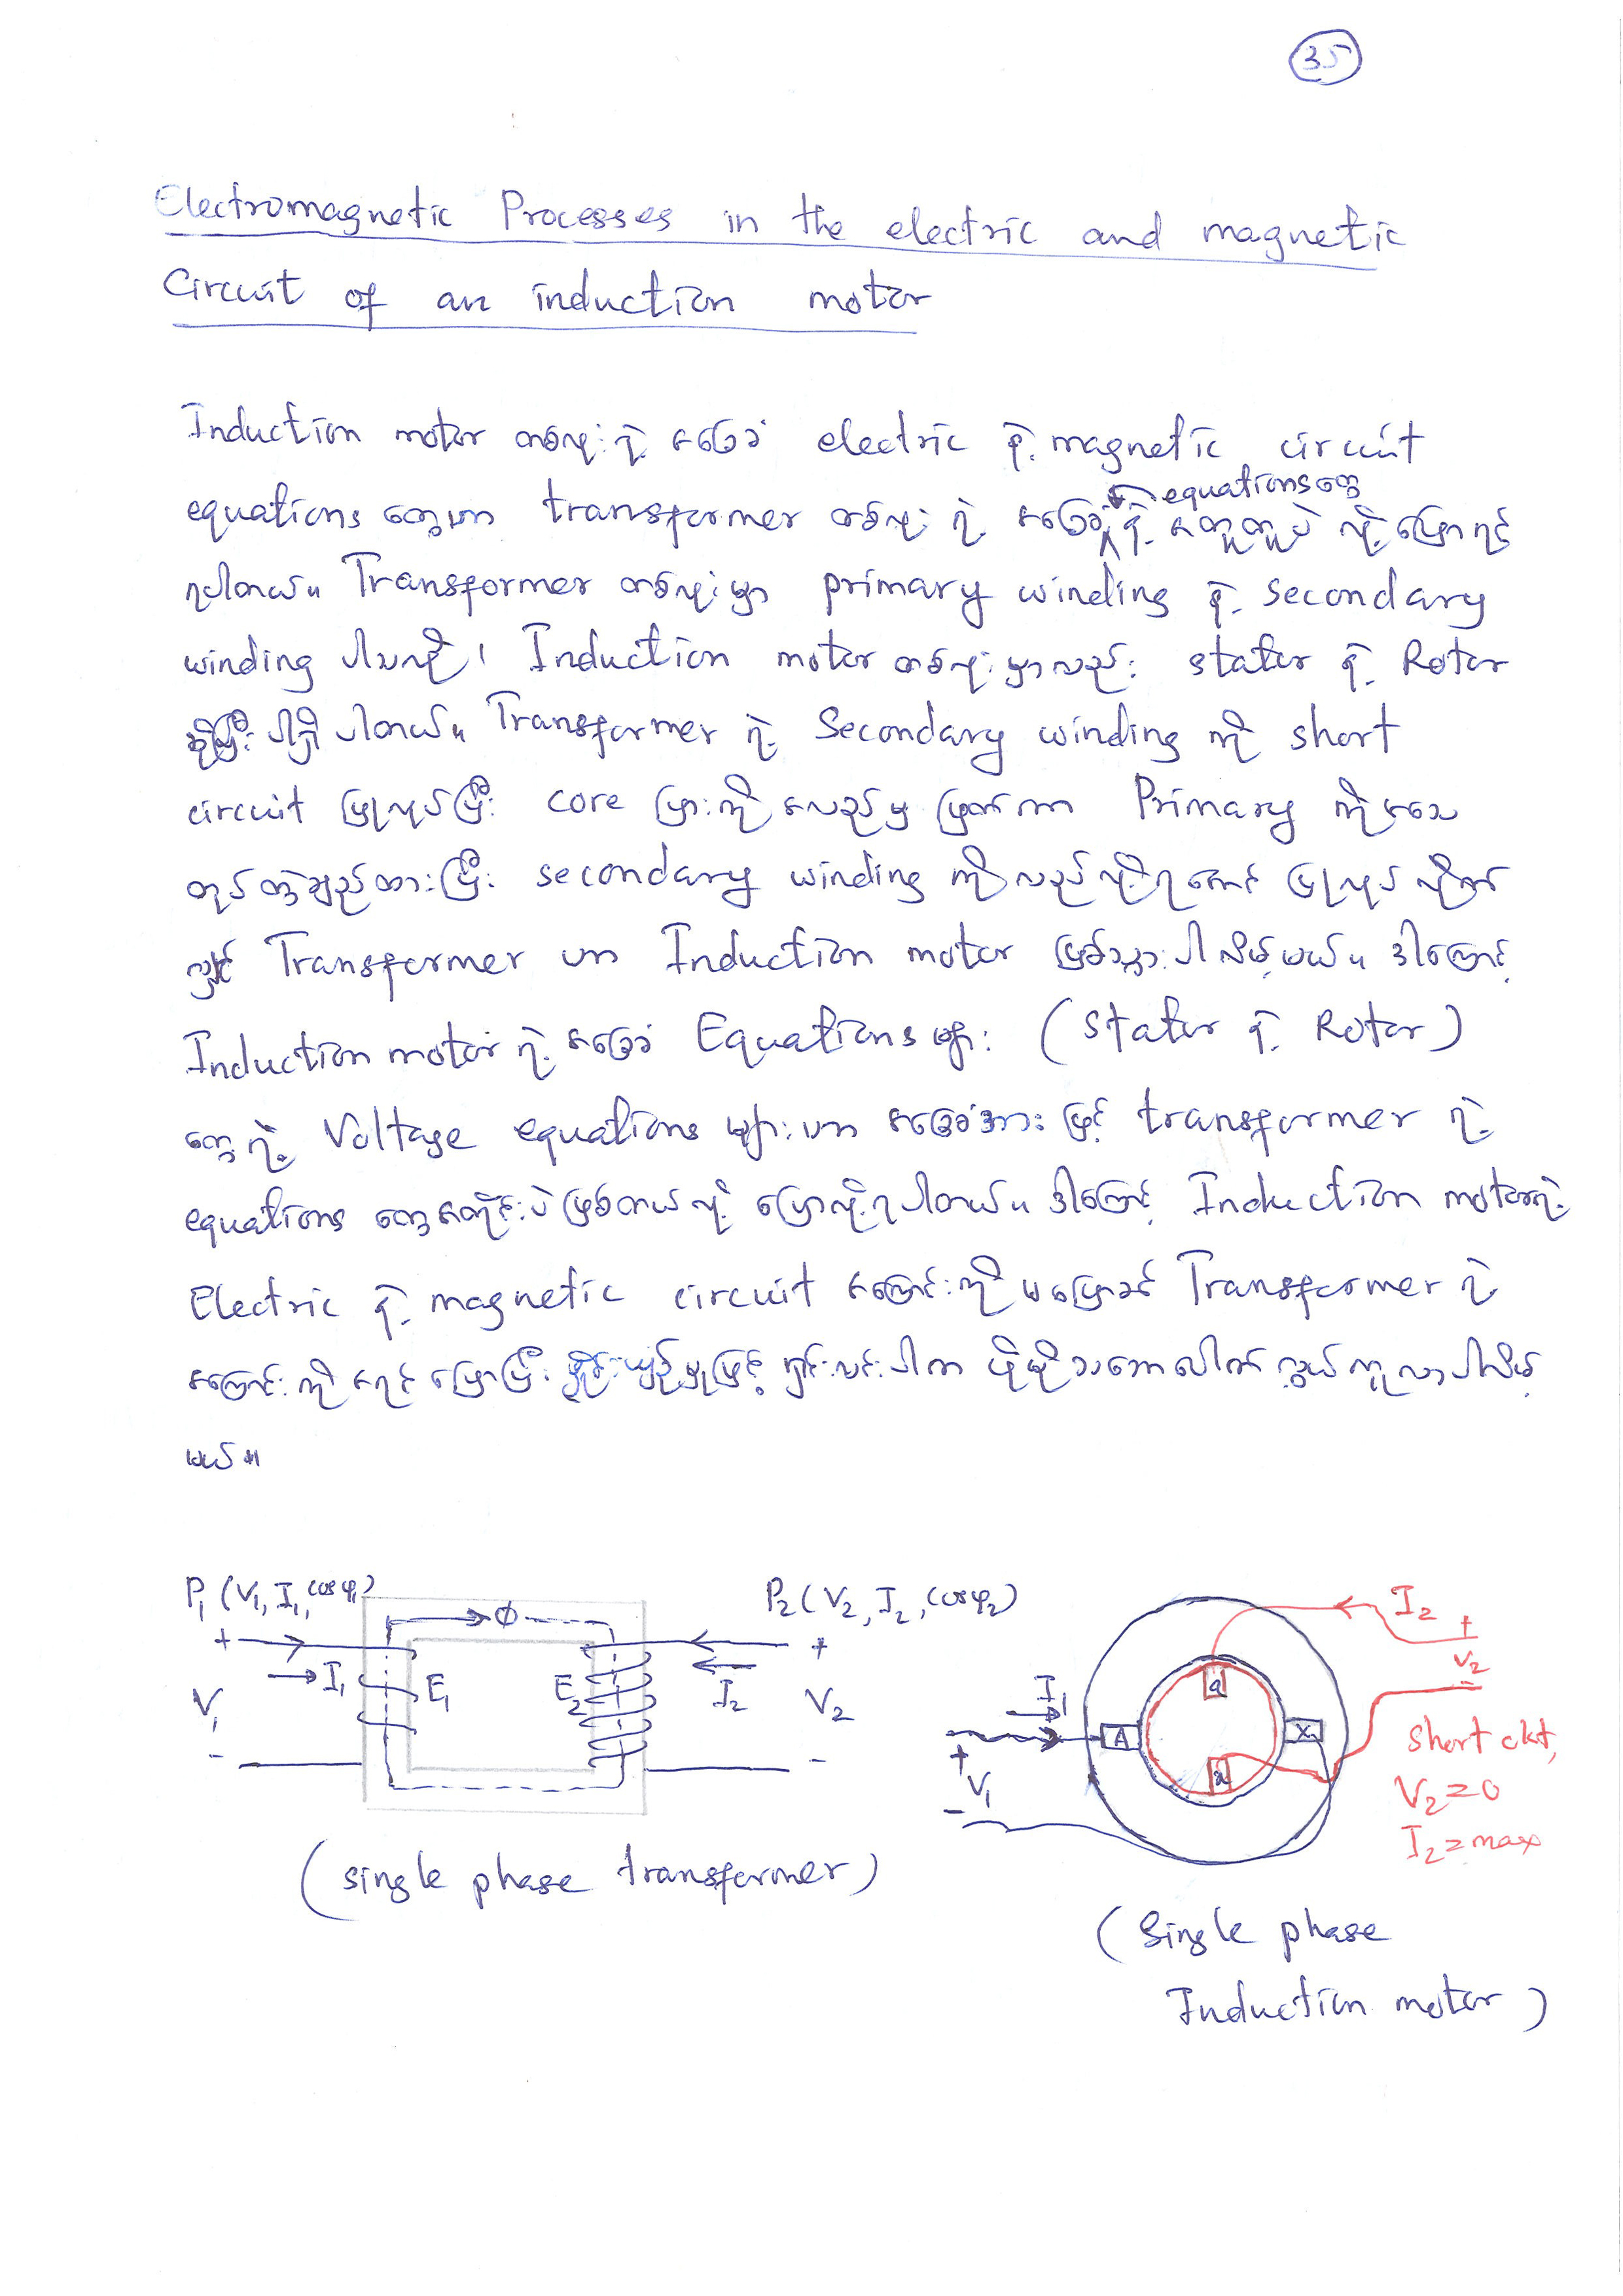 35
Electromagnetic Processes in the electric and magnetic
Circuit of an induction motor
Induction motor တစ်လုံးရဲ့ အခြေခံ electric နဲ့ magnetic circuit
equationsတွေ
equations တွေဟာ transformer တစ်လုံး ရဲ့ အခြေခံ နဲ့ အတူတူပဲ လို့ ပြောရင်
ရပါတယ်။ Transformer တစ်လုံးမှာ primary winding နဲ့ secondary
winding ပါသလို၊ Induction motor တစ်လုံးမှာလည်း stator နဲ့ Rotor
ဆိုပြီး ပါရှိ ပါတယ်။ Transformer ရဲ့ Secondary winding ကို short
circuit ပြုလုပ်ပြီး core များကို အလည်မှ ဖြတ်ကာ Primary ကို အသေ
တုပ်တွဲချည်ထားပြီး secondary winding ကို လည်လို့ရအောင် ပြုလုပ် လိုက်
လျှင် Transformer ဟာ Induction motor ဖြစ်သွားပါလိမ့်မယ်။ ဒါကြောင့်
Induction motor ရဲ့ အခြေခံ Equations များ (stator နဲ့ Rotor)
တွေ ရဲ့ Voltage equations များဟာ အခြေခံအားဖြင့် transformer ရဲ့
equations တွေအတိုင်းပဲ ဖြစ်တယ်လို့ ပြောလို့ရပါတယ်။ ဒါကြောင့် Induction motorရဲ့
Electric နဲ့ magnetic circuit အကြောင်းကို မပြောခင် Transformer ရဲ့
အကြောင်းကို အရင် ပြောပြီး နှိုင်းယှဉ်မှုဖြင့် ရှင်းလင်းပါက ပိုမို သဘောပေါက် လွယ်ကူလာပါလိမ့်
မယ်။
P₁ (V₁, I₁, cosφ₁)
ϕ
P₂ (V₂, I₂, cosφ₂)
+
I₁
E₁
E₂
I₂
+
V₁
V₂
-
-
(single phase transformer)
I₂
+
V₂
-
I₁
a
A
X
x
+
V₁
-
short ckt,
V₂=0
I₂=max
(Single phase
Induction motor)